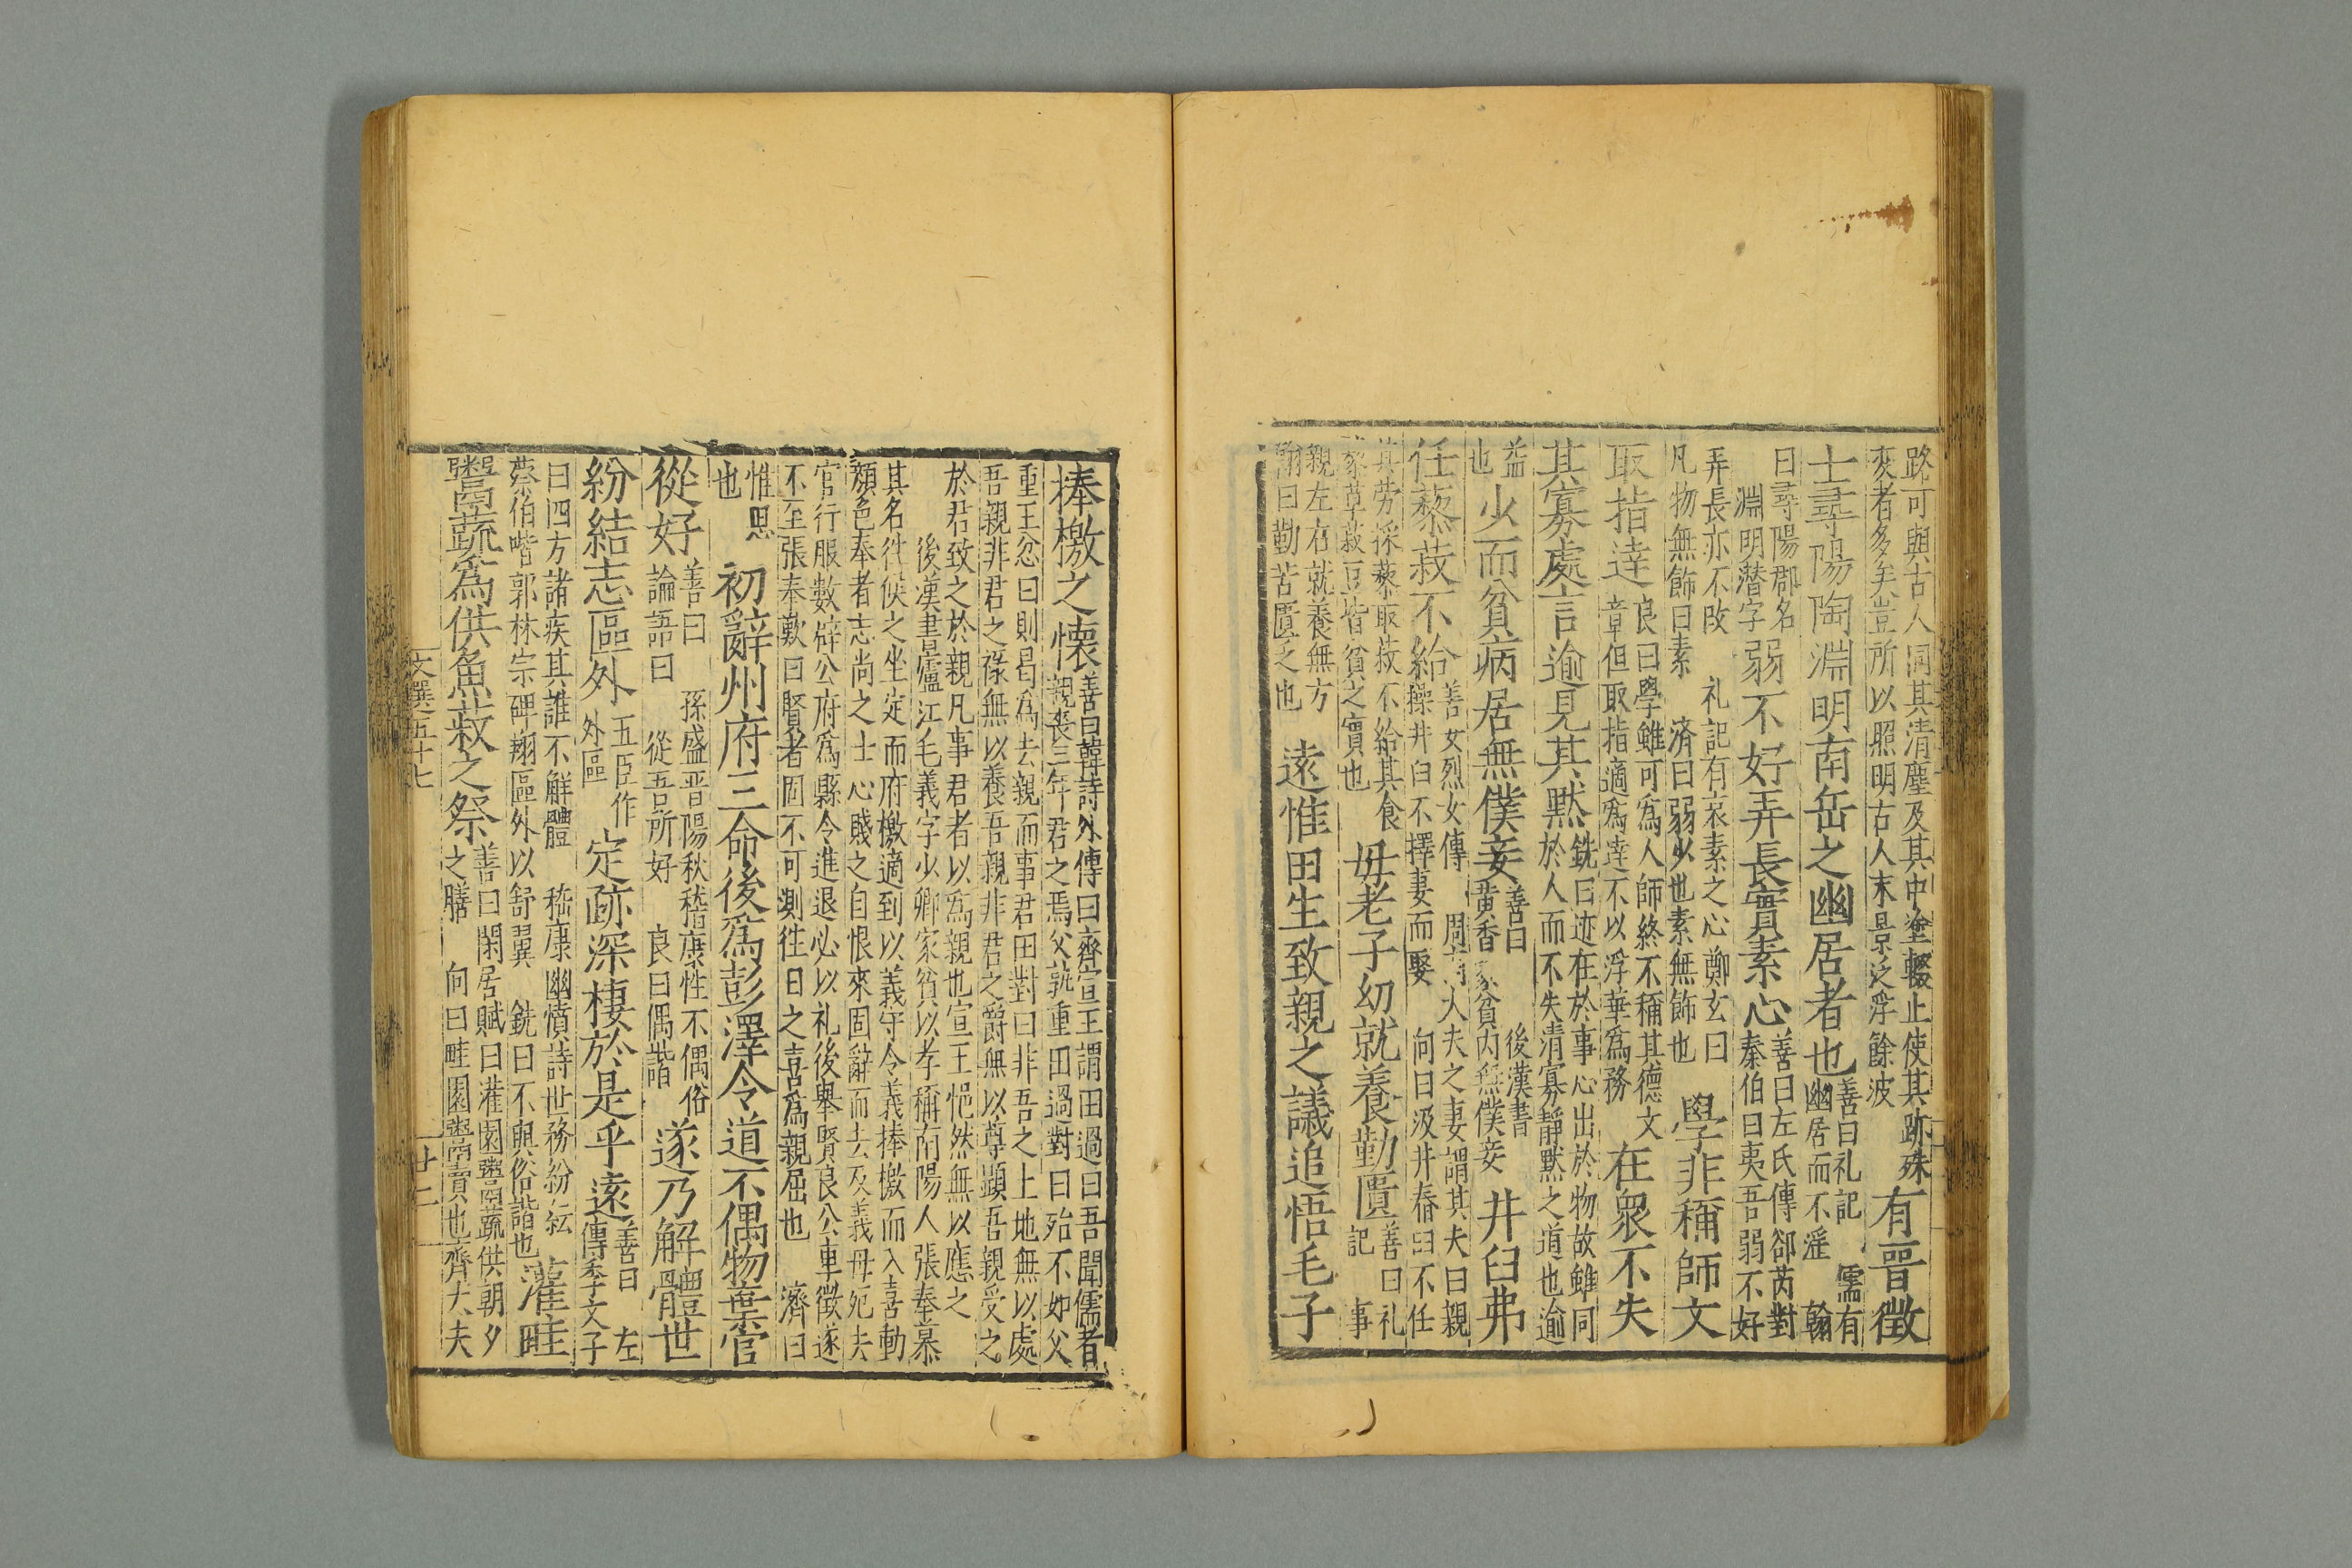 路可與古人同其清塵及其中塗輟止使其跡殊
変者多矣豈所以照明古人末景泛浮餘波
有晋徵
士尋陽陶淵明南岳之幽居者也
善曰礼記儒有
幽居而不淫翰
曰尋陽郡名
淵明潜字
弱不好弄長實素心
善曰左氏傳郤芮對
秦伯曰夷吾弱不好
弄長亦不改礼記有哀素之心鄭玄曰
凡物無飾曰素濟曰弱少也素無飾也
學非稱師文
取指達
良曰學雖可為人師終不稱其德文
章但取指適為達不以浮華為務
在衆不失
其寡處言逾見其默
銑曰迹在於事心出於物故雖同
於人而不失清寡靜默之道也逾
益
也
少而貧病居無僕妾
善曰後漢書
黄香家貧内無僕妾
井臼弗
任藜菽不給
善女列女傳周南大夫之妻謂其夫曰親
操井臼不擇妻而娶向曰汲井舂臼不任
其勞採藜取菽不給其食
藜草菽豆皆貧之實也
母老子幼就養勤匱
善曰礼
記事
親左右就養無方
翰曰勤苦匱乏也
遠惟田生致親之議追悟毛子
捧檄之懷
善曰韓詩外傳曰齊宣王謂田過曰吾聞儒者
親喪三年君之焉父孰重田過對曰殆不如父
重王忿曰則曷為去親而事君田對曰非吾之土地無以處
吾親非君之祿無以養吾親非君之爵無以尊顯吾親受之
於君致之於親凡事君者以為親也宣王悒然無以應之
後漢書廬江毛義字少卿家貧以孝稱南陽人張奉慕
其名徃候之坐定而府檄適到以義守令義捧檄而入喜動
顔色奉者志尚之士心賤之自恨來固辭而去及義母死去
官行服數辟公府為縣令進退必以礼後舉賢良公車徵遂
不至張奉歎曰賢者固不可測徃日之喜為親屈也濟曰
惟思
也
初辭州府三命後為彭澤令道不偶物棄官
從好
善曰孫盛晋陽秋嵇康性不偶俗
論語曰從吾所好良曰偶諧
遂乃解體世
紛結志區外
五臣作
外區
定跡深棲於是乎遠
善曰左
傳季文子
曰四方諸疾其誰不解體嵇康幽憤詩世務紛紜
蔡伯喈郭林宗碑翔區外以舒翼銑曰不與俗諧也
灌畦
鬻蔬為供魚菽之祭
善曰閑居賦曰灌園鬻蔬供朝夕
之膳向曰畦園鬻賣也齊大夫
文選五十七
廿二